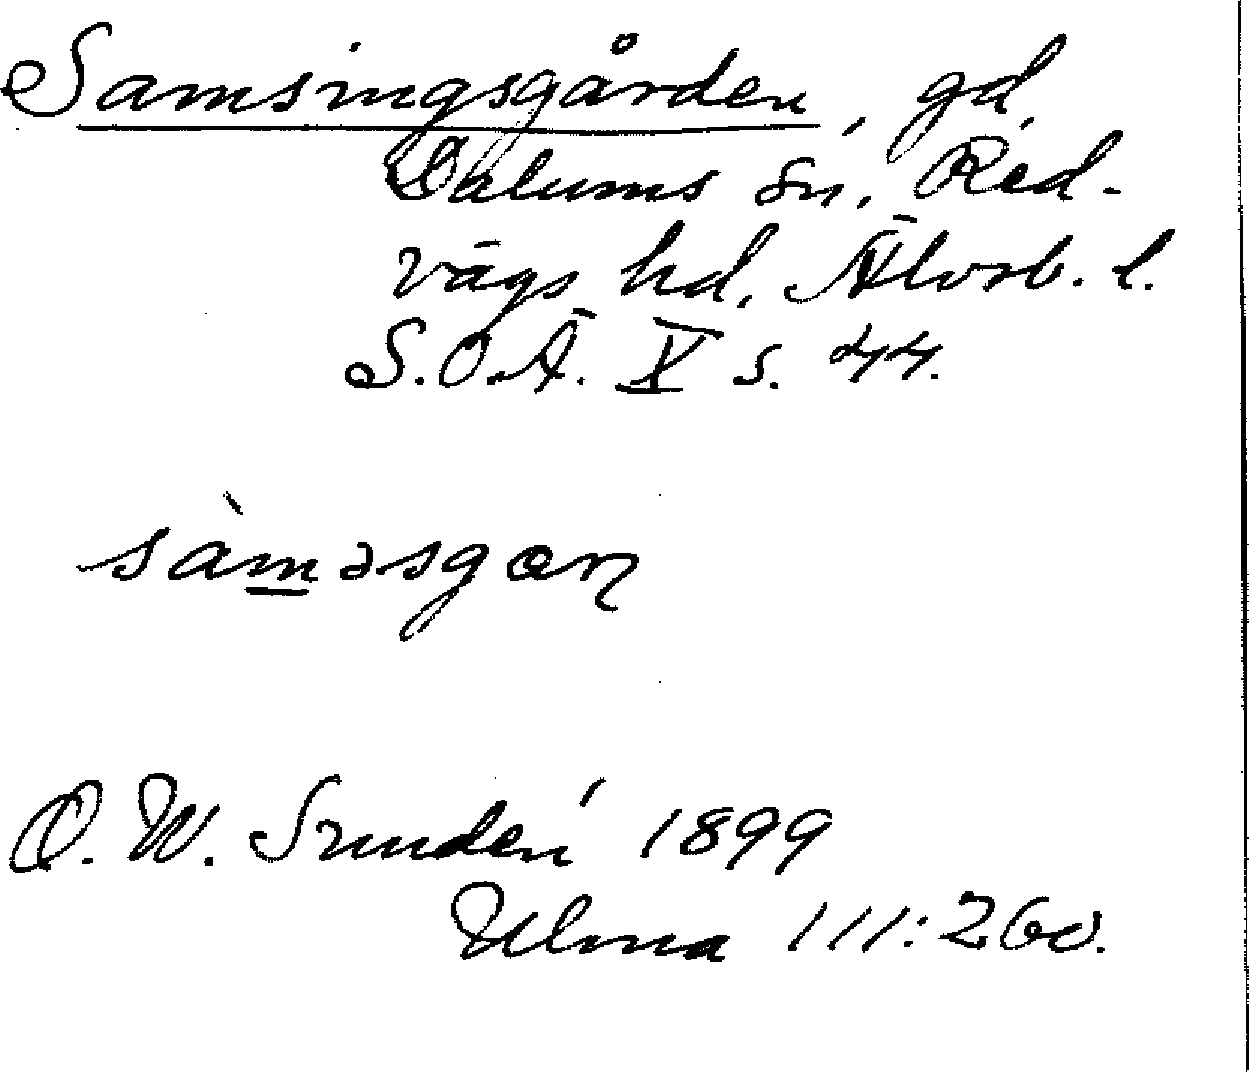 Samsingsgården, gd,
Dalums sn, Red-
vägs hd, Älvsb. l.
S.O.Ä. X s. 44.
sàm̲əsgaɳ
D. W. Sundén 1899
Ulma 111:260.